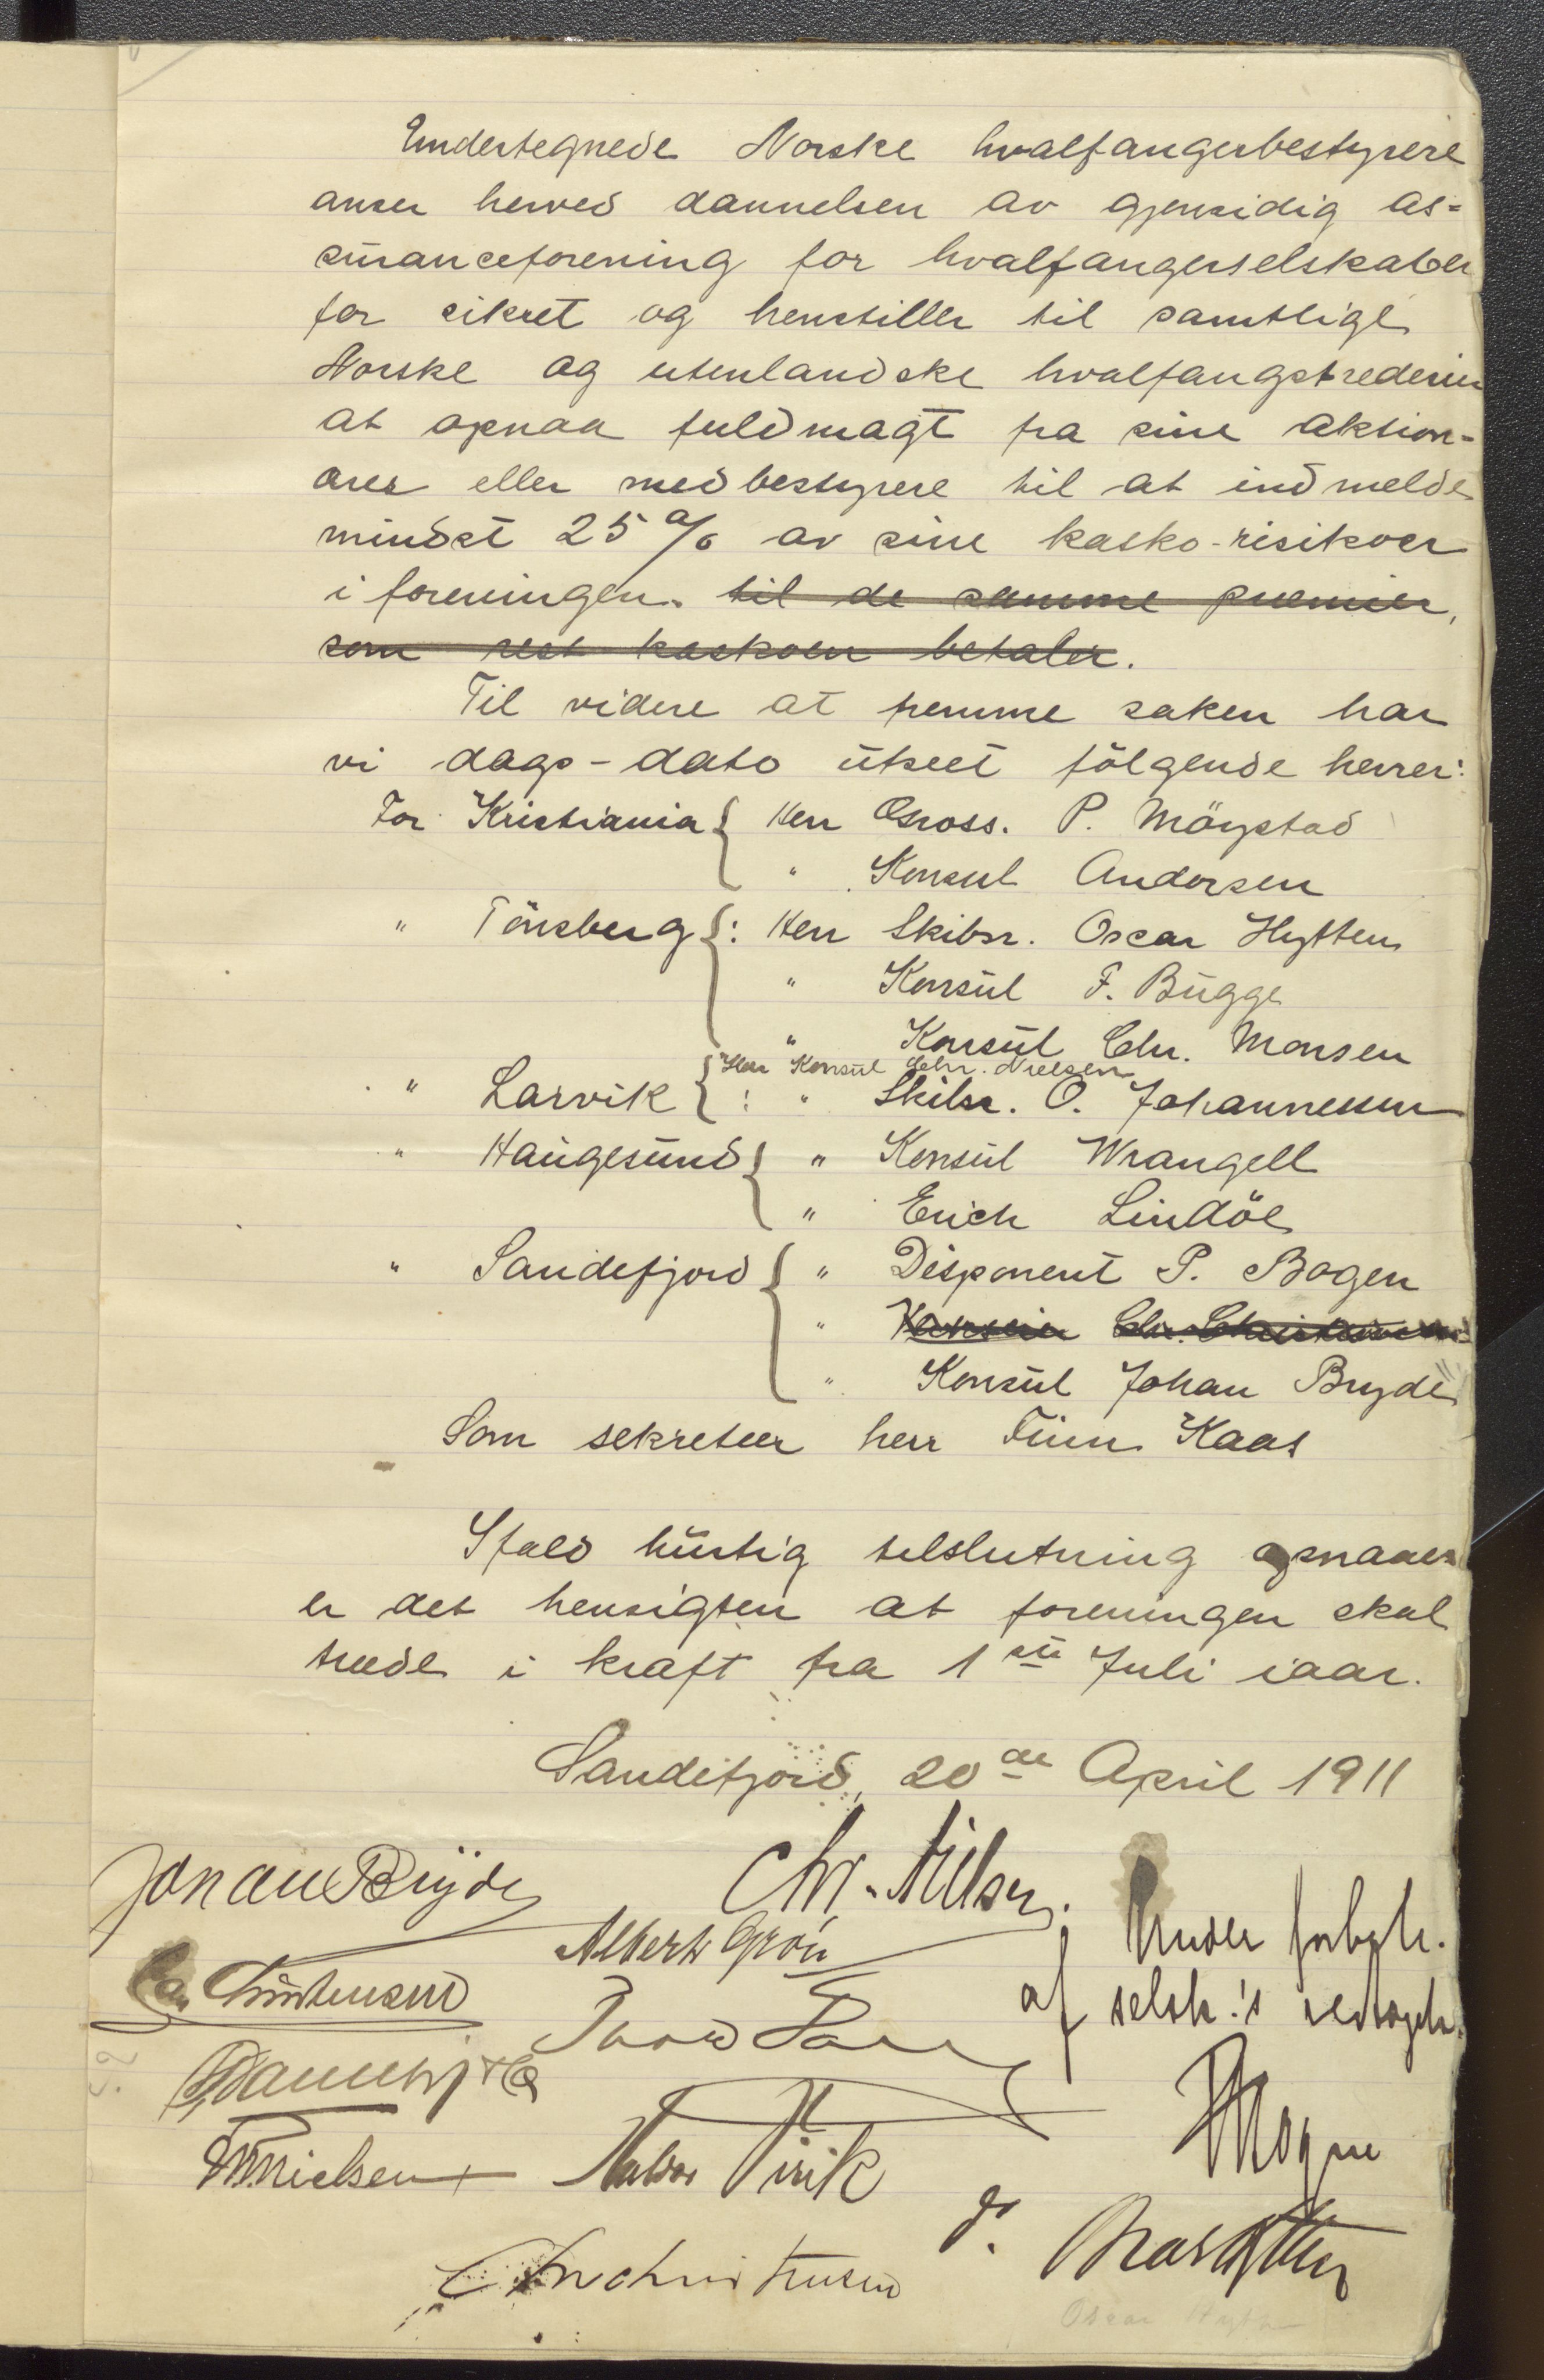 Undertegnede Norske hvalfangerbestyrere
anser herved dannelsen av gjensidig as-
suranceforening for hvalfangerselskaber
for sikret og henstiller til samtlige
Norske og utenlandske hvalfangstrederier
at opnaa fuldmagt fra sine aktion-
ærer eller medbestyrere til at indmelde
mindst 25 % av sine kasko-risikoer
i foreningen. til de samme præmier,
som rest kaskoen betaler.
Til videre at fremme saken har
vi dags-dato utseet følgende herrer:
For Kristiania { Herr Gross. P. Möystad
" Konsul Andersen
" Tönsberg {: Herr Skibsr. Oscar Hytten
" Konsul F. Bugge
" Konsul Chr. Monsen
Herr Konsul Chr. Nielsen
" Larvik { : " Skibsr. O. Johannessen
" Haugesund { " Konsul Wrangell
" Erich Lindöe
" Sandefjord { " Disponent P. Bogen
" Chr. Christensen
" Konsul Johan Bryde
Som sekretær herr Finn Kaas
Ifald hurtig tilslutning opnaaes
er det hensigten at foreningen skal
træde i kraft fra 1ste Juli iaar.
Sandefjord, 20de April 1911
Johan Bryde
Chr. Nilsen.
Albert Grøn
Under forbeh.
af selsk.'s vedtagelse.
Christensen
Thor Dahl
& Co
P Bogen
Nielsen
Halvor Virik
Oscar Hytten
Chr Christensen
Oscar Hytten